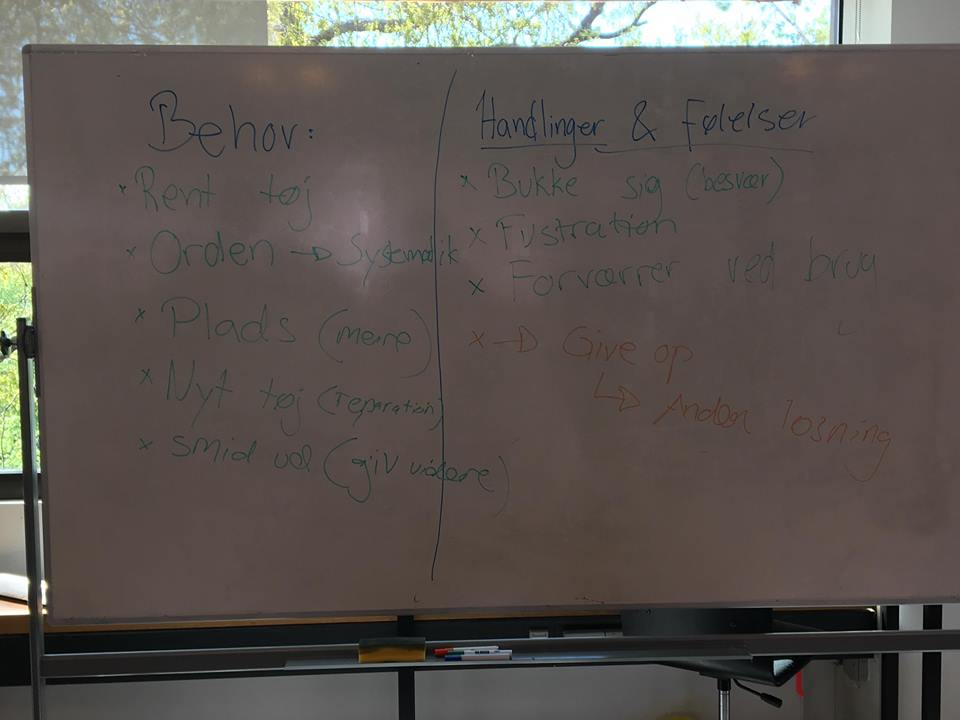 Behov:
x Rent tøj
x Orden → Systematik
x Plads (mere)
x Nyt tøj (reparation)
x smid ud (giv videre)
Handlinger & Følelser
x Bukke sig (besvær)
x Fustration
x Forværrer ved brug
x → Give op
↳ Anden løsning